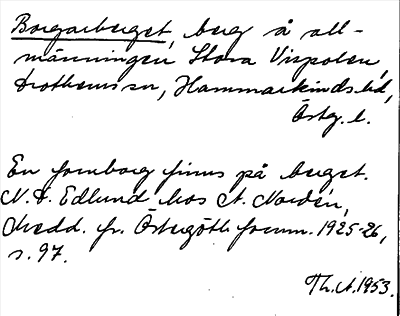 Borgarberget, berg å all-
männingen Stora Vispolen,
Drothems sn, Hammarkinds hd,
Östg. l.
En fornborg finns på berget.
N. D. Edlund hos A. Nordén,
Medd. fr. Östergötl. fornm. 1925-26,
s. 97.
Th. A. 1953.